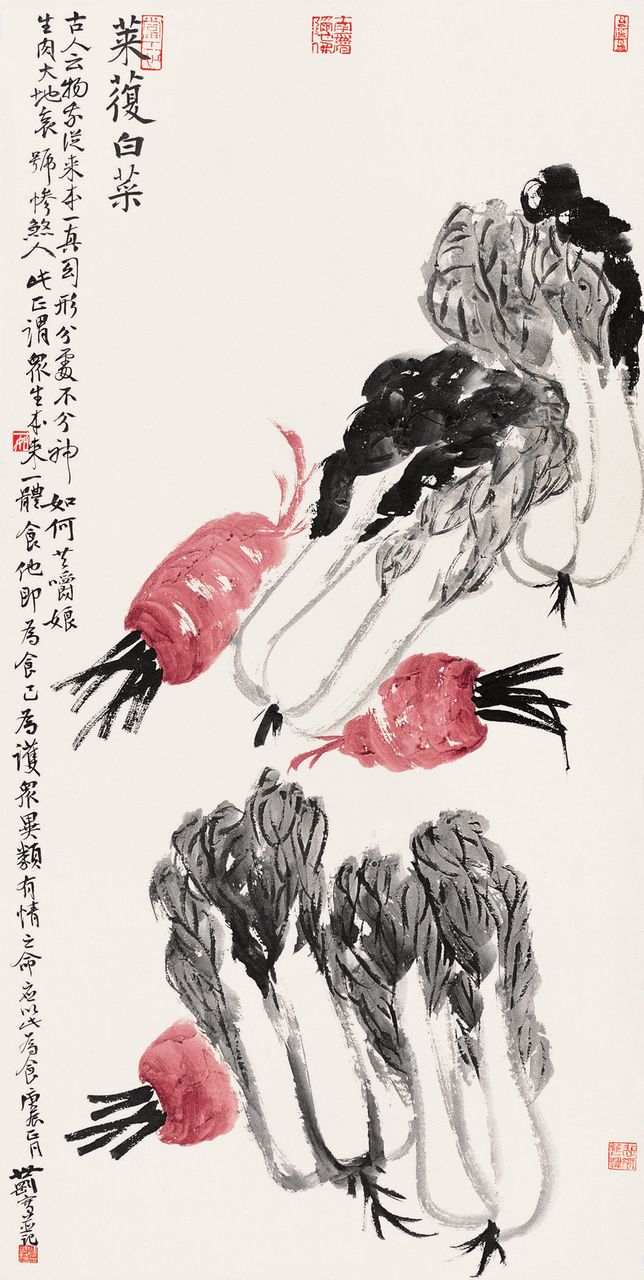 萊蕧白菜
古人云物我從来本一真幻形分處不分神如何共嚼娘
生肉大地哀號慘煞人此正謂衆生本来一體食他即為食己為護衆異類有情之命应以此為食庚辰正月